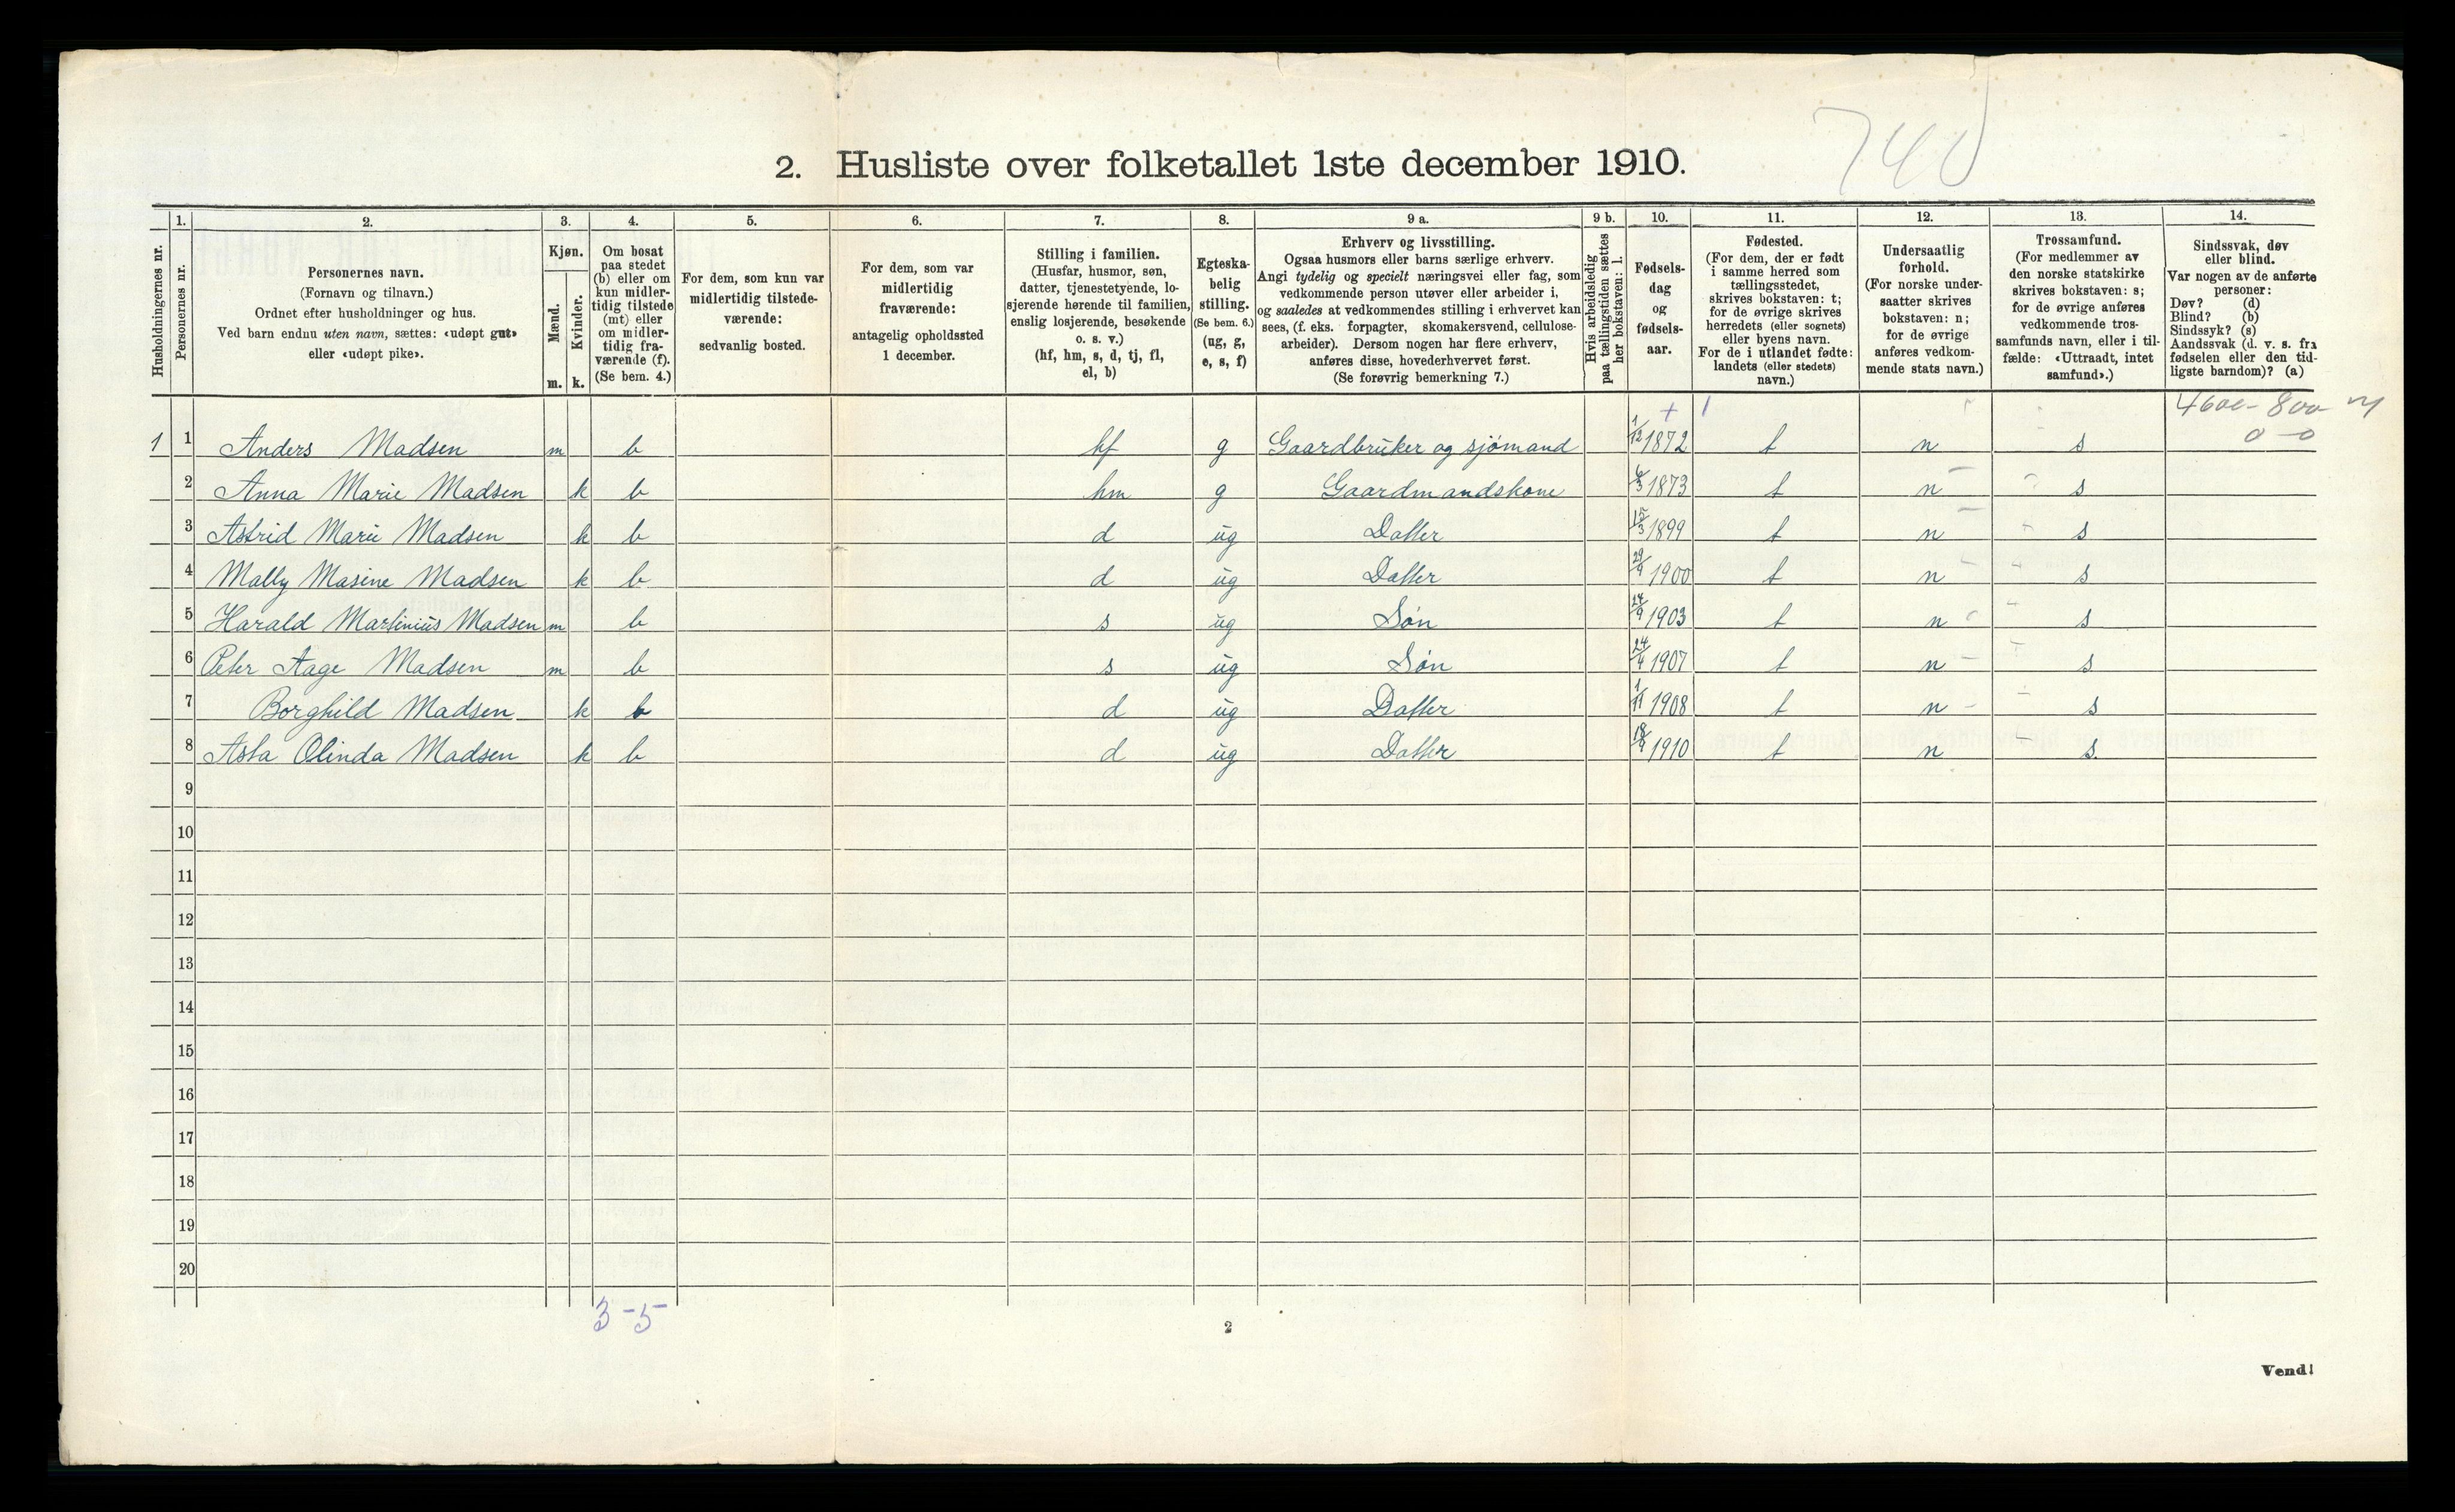 740
2. Husliste over folketallet 1ste december 1910.
Husholdningernes nr.
1.
Personernes nr.
2.
Personernes navn.
(Fornavn og tilnavn.)
Ordnet efter husholdninger og hus.
Ved barn endnu uten navn, sættes: «udøpt gut»
eller «udøpt pike».
3.
Kjøn.
Mænd.
Kvinder.
m. k.
4.
Om bosat
paa stedet
(b) eller om
kun midler-
tidig tilstede
(mt) eller
om midler-
tidig fra-
værende (f).
(Se bem. 4.)
5.
For dem, som kun var
midlertidig tilstede-
værende:
sedvanlig bosted.
6.
For dem, som var
midlertidig
fraværende:
antagelig opholdssted
1 december.
7.
Stilling i familien.
(Husfar, husmor, søn,
datter, tjenestetyende, lo-
sjerende hørende til familien,
enslig losjerende, besøkende
o. s. v.)
(hf, hm, s, d, tj, fl,
el, b)
8.
Egteska-
belig
stilling.
(Se bem. 6.)
(ug, g,
e, s, f)
9 a.
Erhverv og livsstilling.
Ogsaa husmors eller barns særlige erhverv.
Angi tydelig og specielt næringsvei eller fag, som
vedkommende person utøver eller arbeider i,
og saaledes at vedkommendes stilling i erhvervet kan
sees, (f. eks. forpagter, skomakersvend, cellulose-
arbeider). Dersom nogen har flere erhverv,
anføres disse, hovederhvervet først.
(Se forøvrig bemerkning 7.)
9 b.
Hvis arbeidsledig
paa tællingstiden sættes
her bokstaven: l.
10.
Fødsels-
dag
og
fødsels-
aar.
11.
Fødested.
(For dem, der er født
i samme herred som
tællingsstedet,
skrives bokstaven: t;
for de øvrige skrives
herredets (eller sognets)
eller byens navn.
For de i utlandet fødte:
landets (eller stedets)
navn.)
12.
Undersaatlig
forhold.
(For norske under-
saatter skrives
bokstaven: n;
for de øvrige
anføres vedkom-
mende stats navn.)
13.
Trossamfund.
(For medlemmer av
den norske statskirke
skrives bokstaven: s;
for de øvrige anføres
vedkommende tros-
samfunds navn, eller i til-
fælde: «Uttraadt, intet
samfund».)
14.
Sindssvak, døv
eller blind.
Var nogen av de anførte
personer:
Døv? (d)
Blind? (b)
Sindssyk? (s)
Aandssvak (d. v. s. fra
fødselen eller den tid-
ligste barndom)? (a)
+ 1
0 - 0
1 1 Anders Madsen m b hf g Gaardbruker og sjømand 1/12 1872 t n s
2 Anna Marie Madsen k b hm g Gaardmandskone 1873 t n s
3 Astrid Marie Madsen k b d ug Datter 15/3 1899 t n s
4 Mally Masine Madsen k b d ug Datter 29/9 1900 t n s
5 Harald Martinius Madsen m b s ug Søn 24/9 1903 t n s
6 Peter Aage Madsen m b s ug Søn 24/4 1907 t n s
7 Borghild Madsen k b d ug Datter 1/11 1908 t n s
8 Asta Olinda Madsen k b d ug Datter 1910 t n s.
9
10
11
12
13
14
15
16
17
18
19
20
3-5
2
Vend!